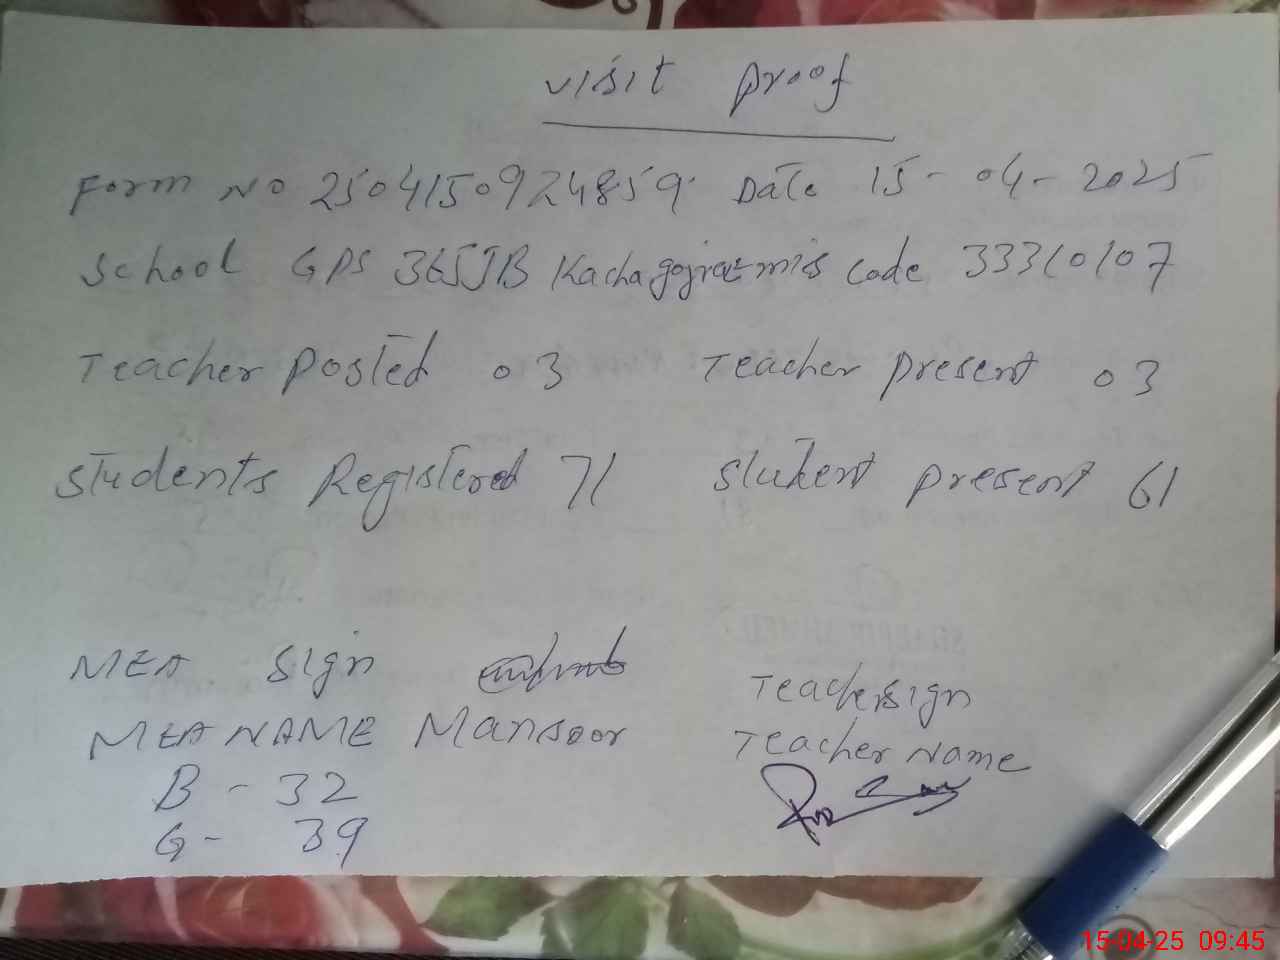 visit proof
Form No 2504150924859 Date 15-04-2025
School GPS 365JB Kachagojra Emis Code 33310107
Teacher posted 03 Teacher present 03
Students Registered 71 Student present 61
MEA Sign
Teacher Sign
MEA NAME Mansoor
Teacher Name
B - 32
G - 39
15-04-25 09:45